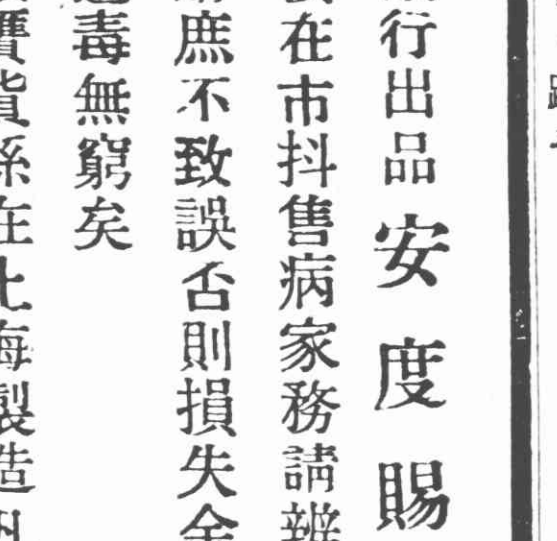 行出品安度賜
在市抖售病家務請辨
庶不致誤否則損失金
毒無窮矣
贋貨係在上海製造